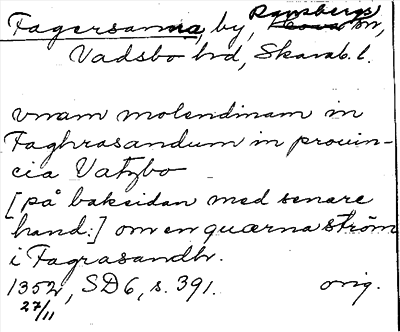 Fagersanna, by, Ransbergs sn,
Vadsbo hd, Skarab. l.
vnam molendinam in
Faghrasandum in prouin-
cia Vatzbo
[på baksidan med senare
hand:] om en quærna ström
i Fagrasandh.
1352, SD 6, s. 391. orig.
27/11